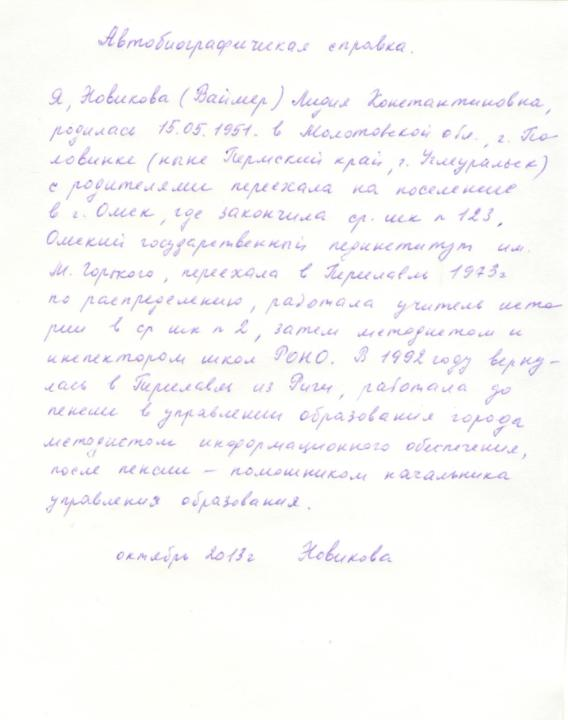 Автобиографическая справка.
Я, Новикова (Ваймер) Лидия Константиновна,
родилась 15.05.1951. в Молотовской обл., г. По-
ловинке (ныне Пермский край, г. Углеуральск)
с родителями переехала на поселение
в г. Омск, где закончила ср. шк № 123,
Омский государственный пединститут им.
М. Горького, переехала в Переславль 1973г
по распределению, работала учитель исто
рии в ср шк № 2, затем методистом и
инспектором школ РОНО. В 1992 году верну-
лась в Переславль из Риги, работала до
пенсии в управлении образования города
методистом информационного обеспечения,
после пенсии – помошником начальника
управления образования.
октябрь 2013г Новикова